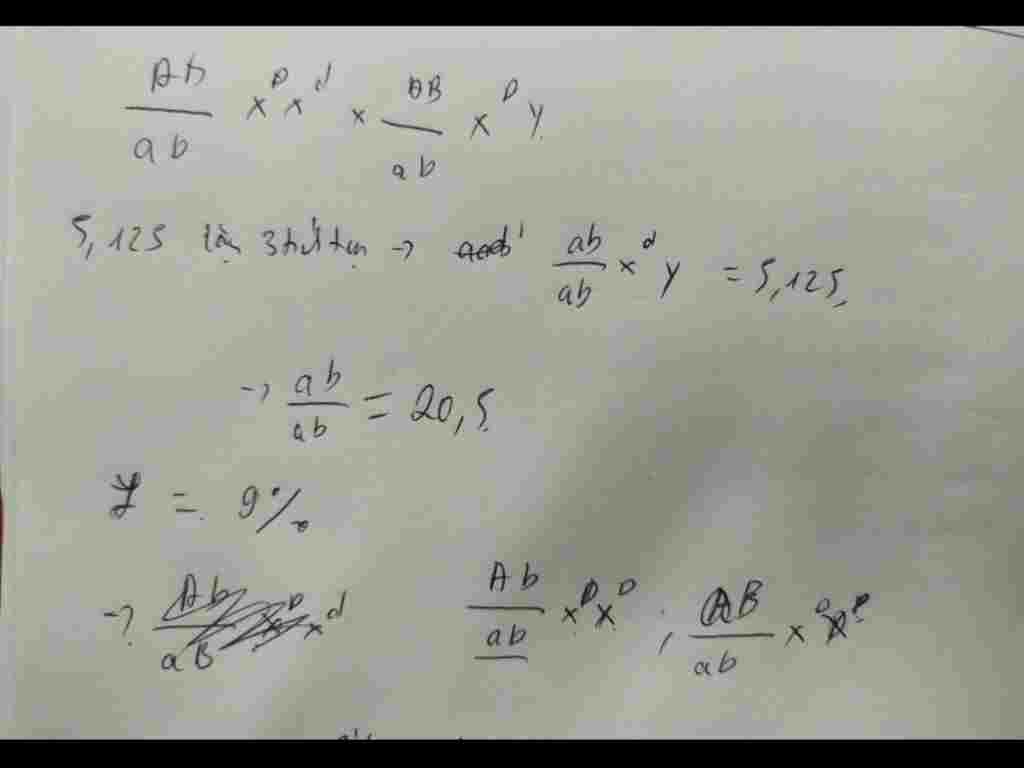 AB/ab X^D X^d × AB/ab X^D Y
5,125 lặn 3 tính trạng → ab/ab X^d Y = 5,125
→ ab/ab = 20,5
f = 9%
→ Ab/aB X^D X^d Ab/ab X^D X^D ; AB/ab X^D